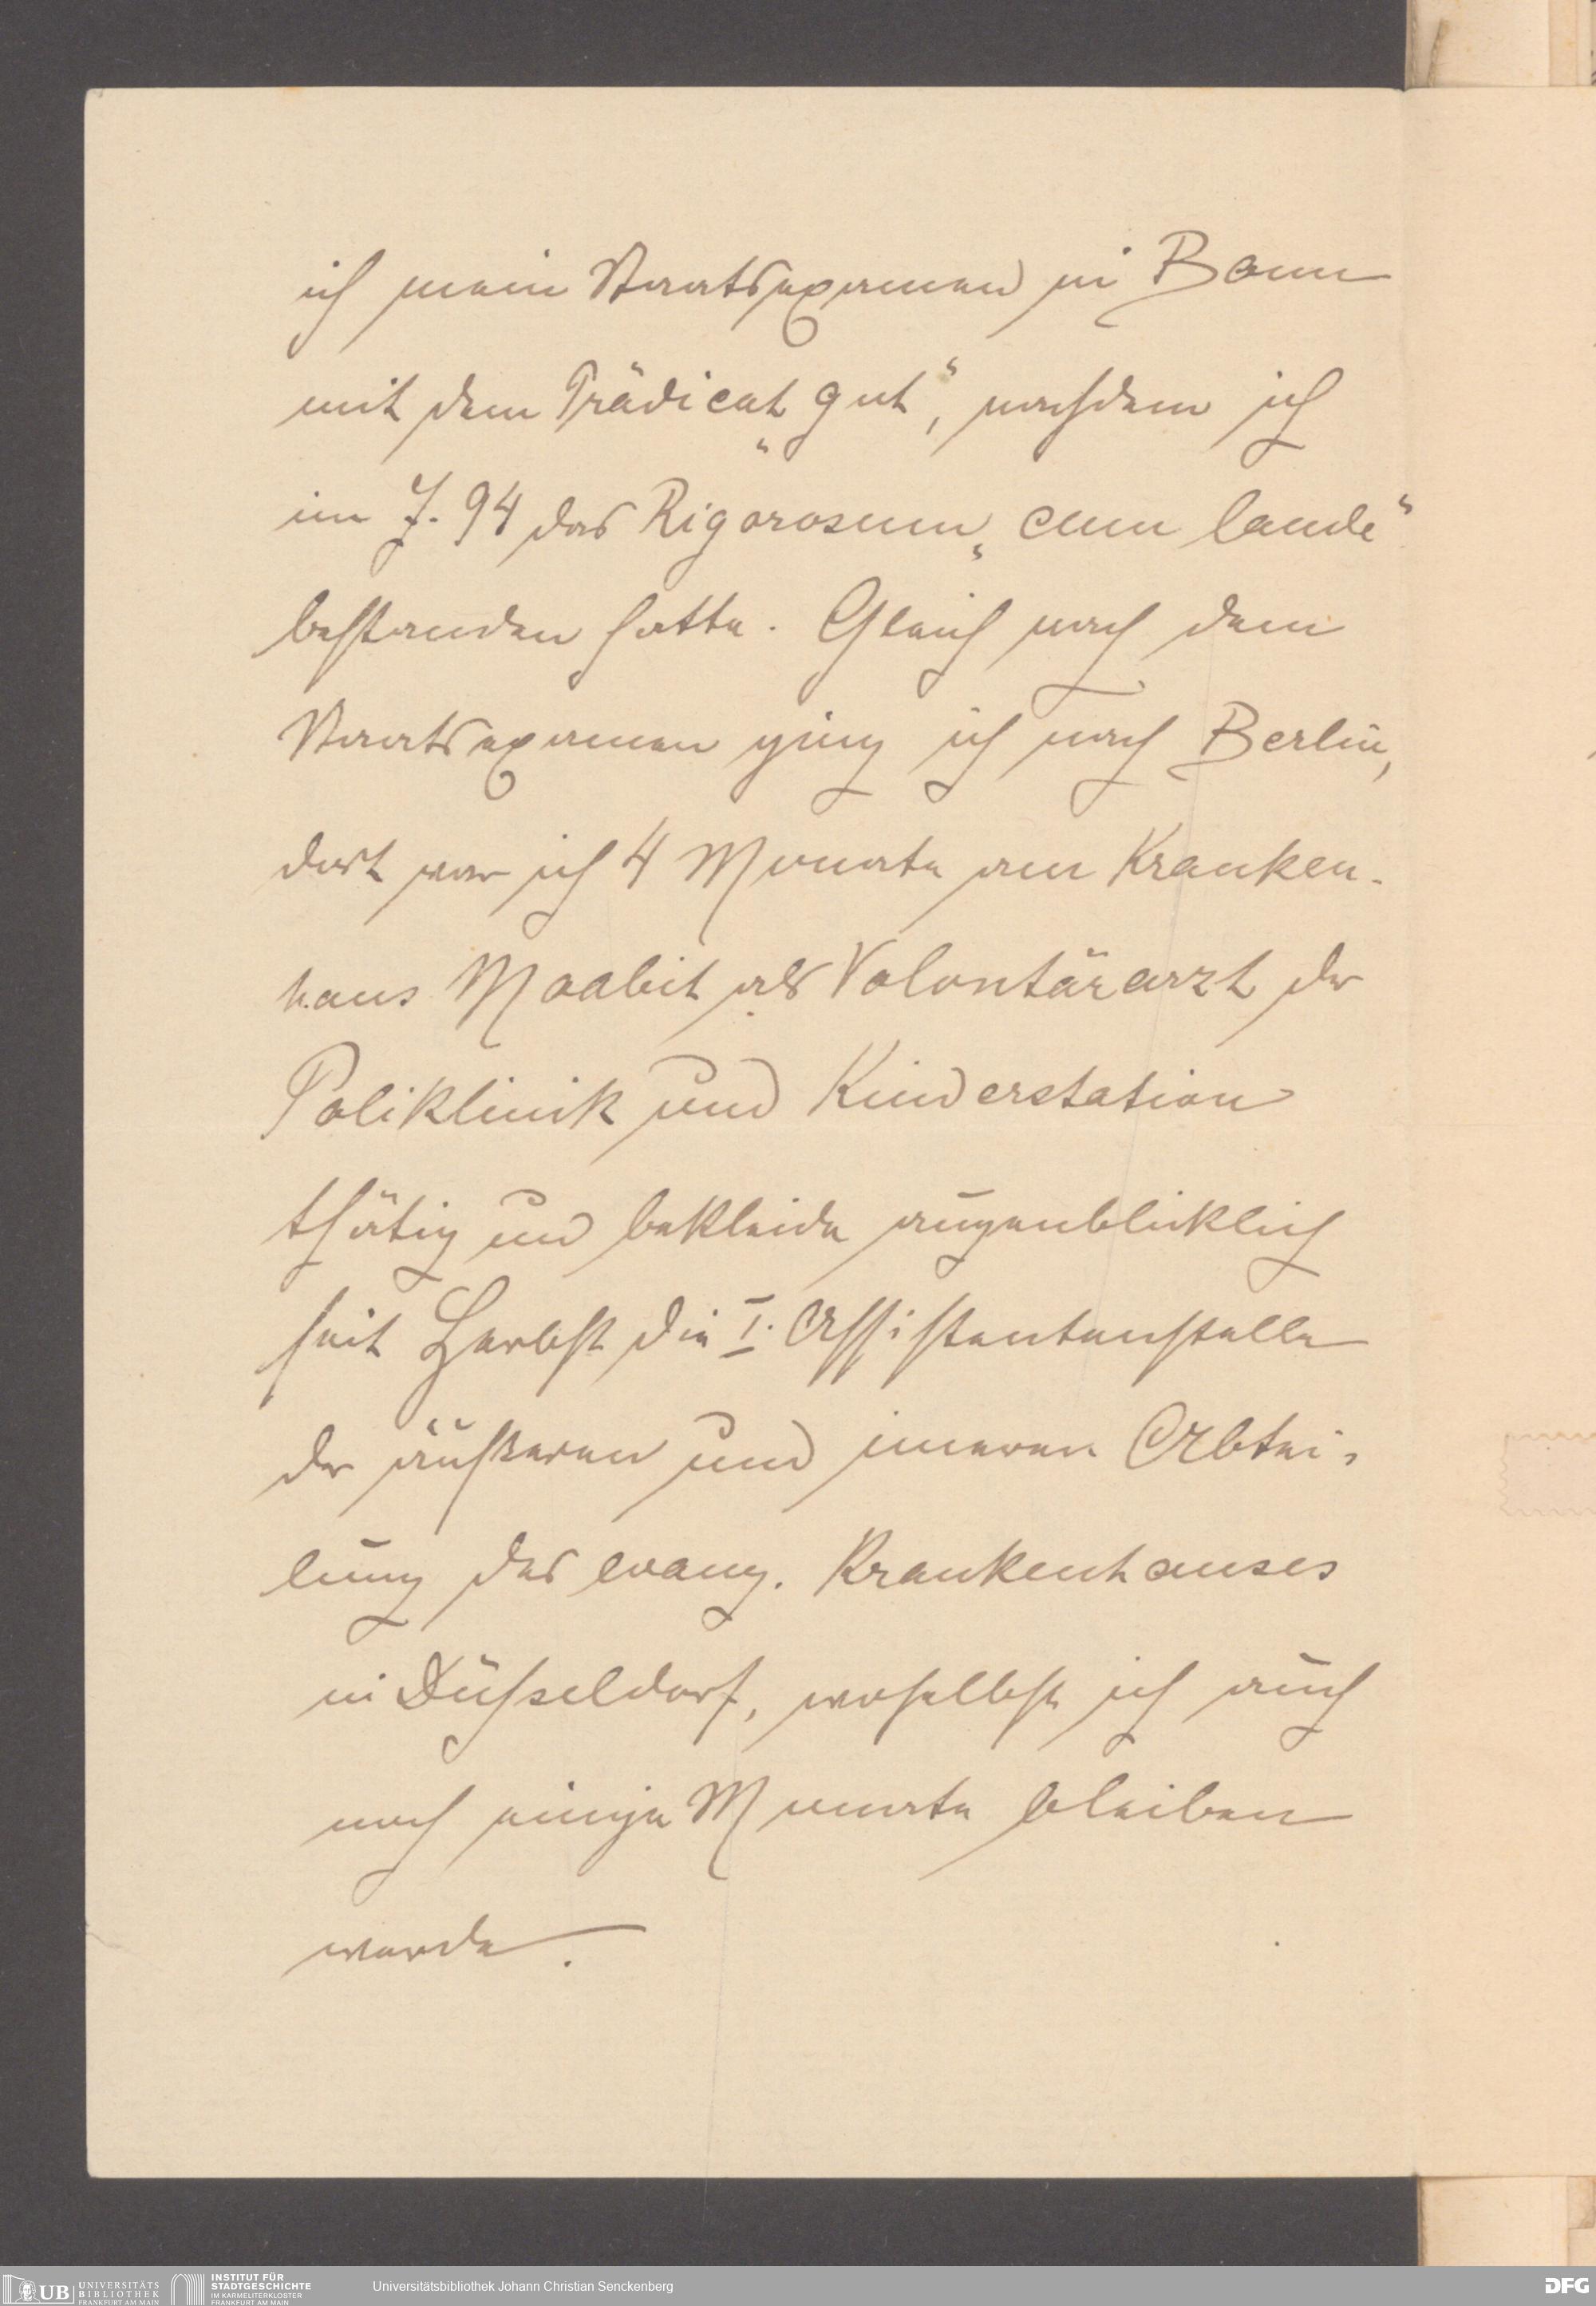 ich mein Staatsexamen in Bonn
mit dem Prädicat „gut“, nachdem ich
im J. 94 das Rigorosum „cum laude“
bestanden hatte. Gleich nach dem
Staatsexamen ging ich nach Berlin,
dort war ich 4 Monate am Kranken-
haus Moabit als Volontärarzt der
Poliklinik und Kinderstation
thätig und bekleide augenblicklich
seit Herbst die I. Assistentenstelle
der äußeren und inneren Abtei-
lung des evang. Krankenhauses
in Düsseldorf, woselbst ich auch
noch einige Monate bleiben
werde.
UB UNIVERSITÄTS BIBLIOTHEK FRANKFURT AM MAIN
INSTITUT FÜR STADTGESCHICHTE IM KARMELITERKLOSTER FRANKFURT AM MAIN
Universitätsbibliothek Johann Christian Senckenberg
DFG